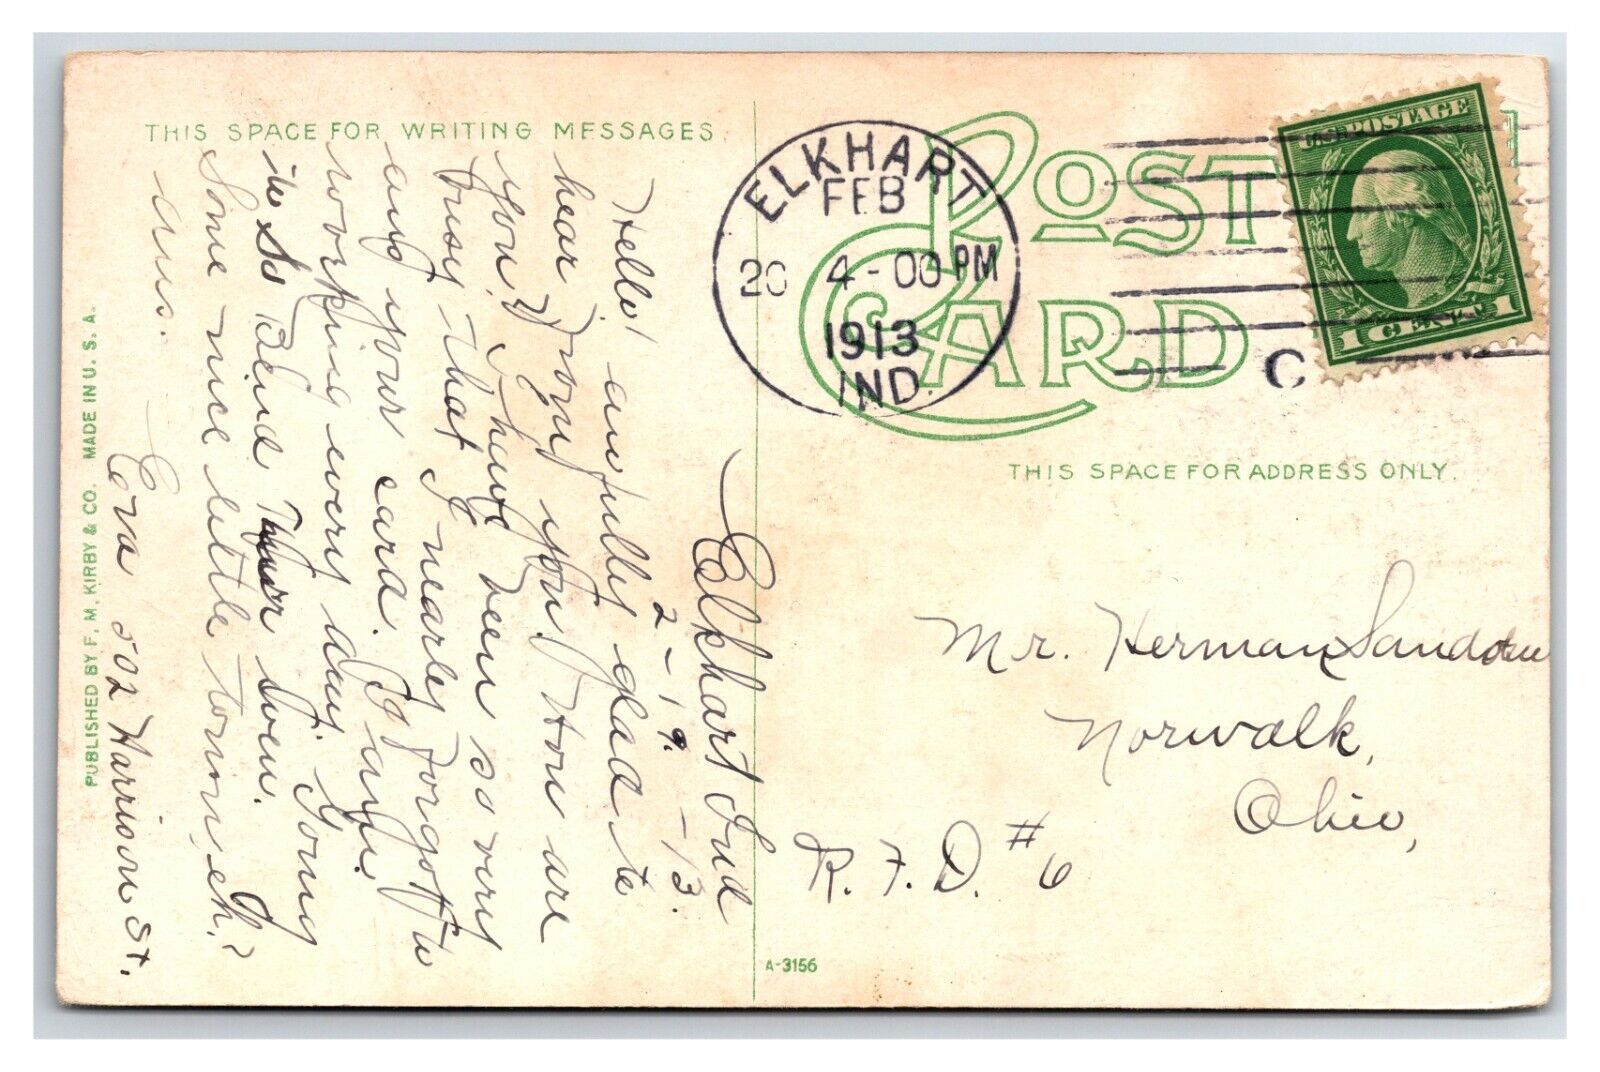 THIS SPACE FOR WRITING MESSAGES
Elkhart Ind
2-19-13.
Hello! awfully glad to
hear from you. How are
you? I have been so very
busy that I nearly forgot to
ans your card.
working every day. Going
to So Bend Thur even.
Some nice little town, eh?
Ans.
Ezra 502 Harrison St.
PUBLISHED BY F. M. KIRBY & CO. MADE IN U. S. A.
POST CARD
ELKHART
FEB
20 4-00 PM
1913
IND.
C
U.S. POSTAGE
1 CENT 1
THIS SPACE FOR ADDRESS ONLY.
Mr. Herman
Norwalk,
Ohio,
R. F. D. #6
A-3156